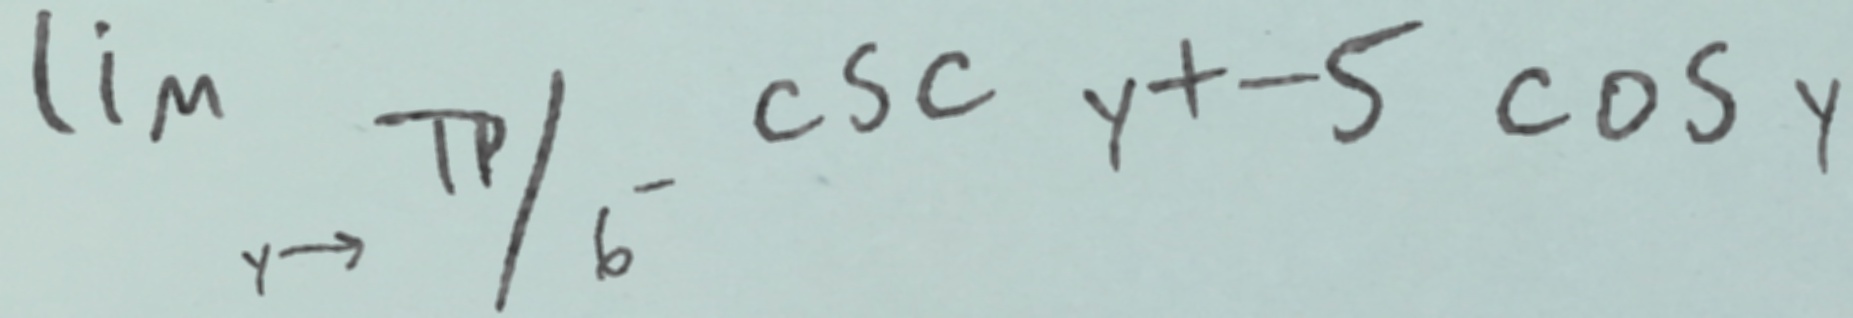 lim y→ π/6⁻ csc y+-5 cos y